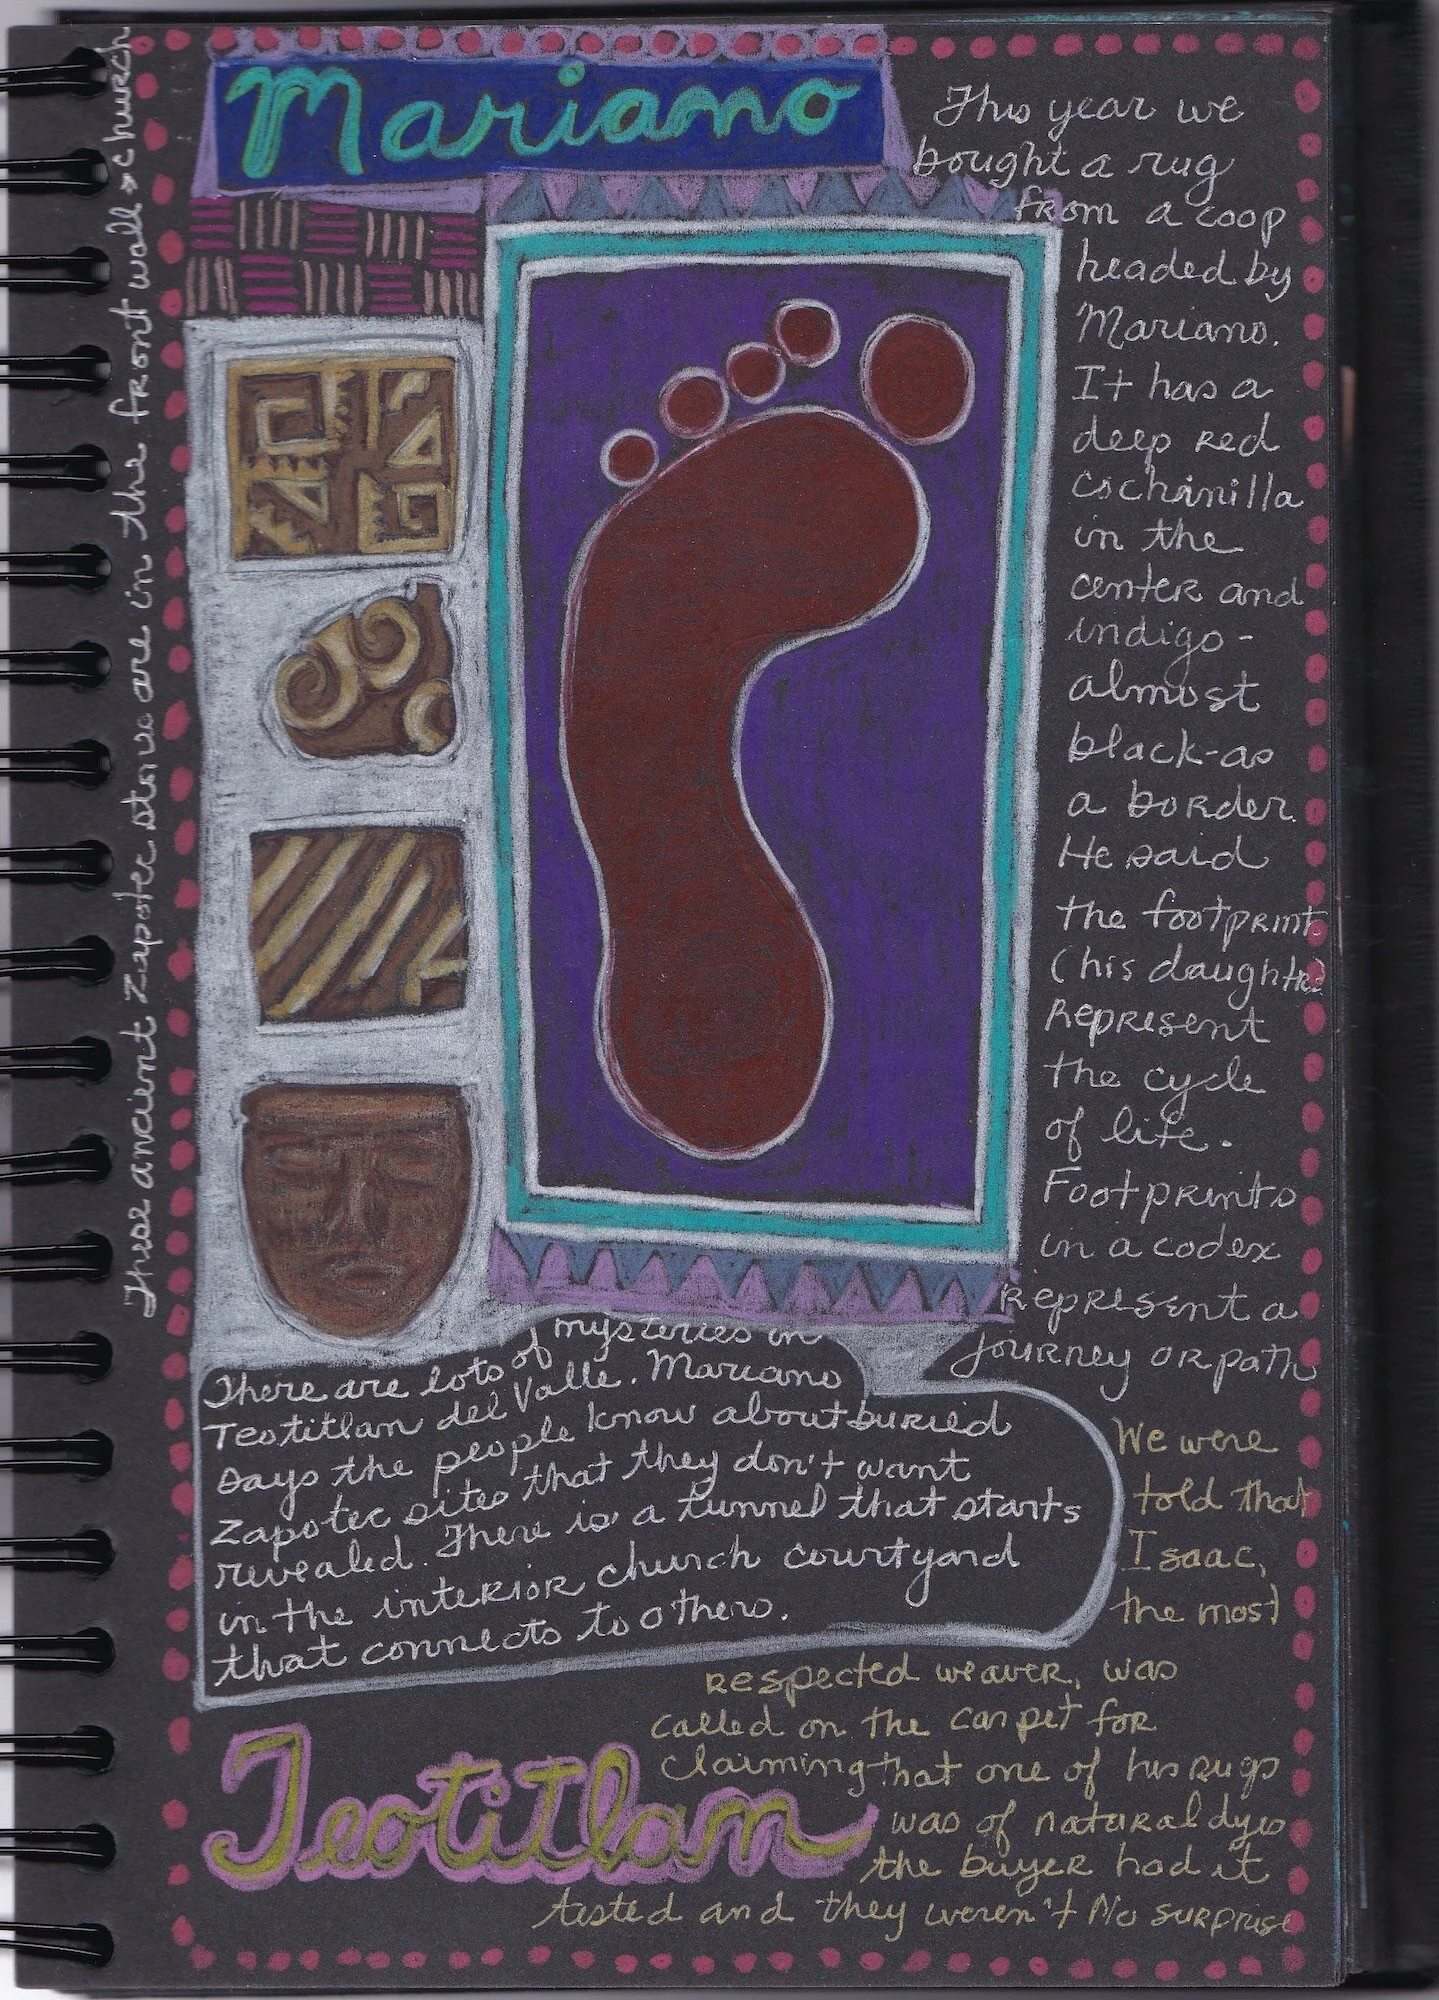 Mariano
This year we
bought a rug
from a coop
headed by
Mariano.
It has a
deep red
cochinilla
in the
center and
indigo-
almost
black-as
a border.
He said
the footprints
(his daughter)
Represent
the cycle
of life.
Footprints
in a codex
Represent a
journey or path
These ancient Zapotec stones are in the front wall > church
There are lots of mysteries in
Teotitlan del Valle. Mariano
says the people know about buried
Zapotec sites that they don't want
revealed. There is a tunnel that starts
in the interior church courtyard
that connects to others.
We were
told that
Isaac,
the most
respected weaver, was
called on the carpet for
claiming that one of his rugs
was of natural dyes
the buyer had it
tested and they weren't No surprise
Teotitlan